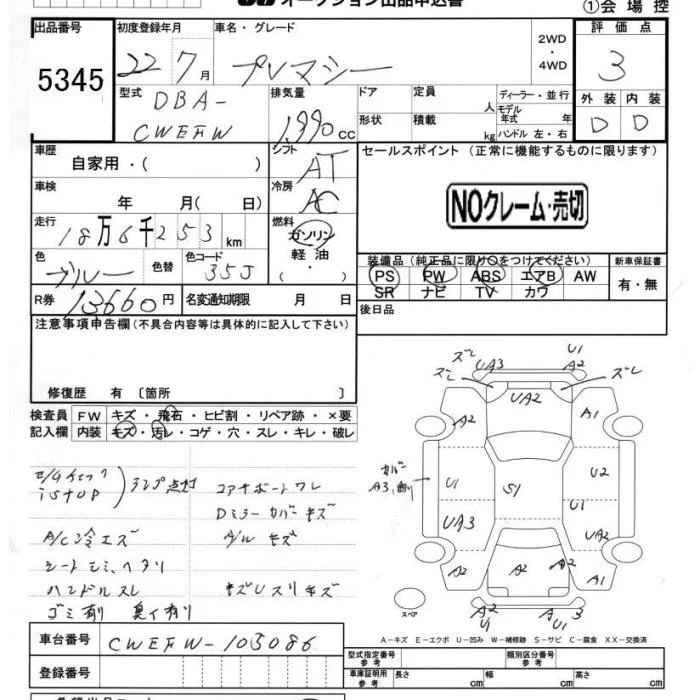 オークション出品申込書
①会場控
出品番号 初度登録年月 車名・グレード 2WD・4WD 評価点
5345 22 7月 プレマシー 3
型式 DBA-CWEFW 排気量 1,990 cc ドア 定員 人 ディーラー・並行 外装 内装
形状 積載 kg モデル年式 年 ハンドル 左・右 D D
車歴 自家用・( ) シフト AT セールスポイント (正常に機能するものに限ります)
車検 年 月( 日) 冷房 AC NOクレーム・売切
走行 18万6千253km 燃料 ガソリン 軽油・
色 ブルー 色替 色コード 35J 装備品(純正品に限り○をつけてください) 新車保証書
PS PW ABS エアB AW 有・無
SR ナビ TV カワ
R券 13660円 名変通知期限 月 日 後日品
注意事項申告欄(不具合内容等は具体的に記入して下さい)
修復歴 有 〔箇所 〕
検査員 FW キズ・飛石・ヒビ割・リペア跡・×要
記入欄 内装 キズ・汚レ・コゲ・穴・スレ・キレ・破レ
i STOP ランプ点灯 コアサポートワレ
Dミラーカバーキズ
A/C冷エズ A/Wキズ
シートモミ、ヘタリ
ハンドルスレ キズUスリキズ
ゴミ有り 臭イ有り
ズレ U1
ズレ UA3 A2 ズレ
UA2
A2 A1
カバー
A3,削り U1 S1 U2
U1
UA3 UA2
A2 A2 A2 A1
スペア A2 UA3
U1 U1
A-キズ E-エクボ U-凹み W-補修跡 S-サビ C-腐食 XX-交換済
車台番号 CWEFW-103086
登録番号
型式指定番号 参考 類別区分番号 参考
車庫証明用 参考 長さ cm 幅 cm 高さ cm